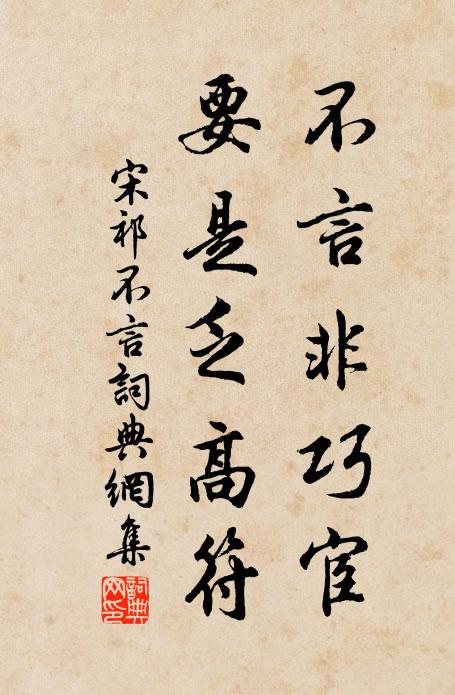 不言非巧宦
要是乏高符
宋祁不言詞典網集
詞典網印